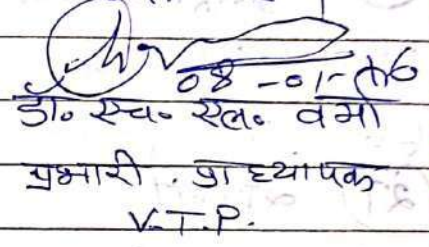 08-01-16
डॉ० एच० एल० वर्मा
प्रभारी . प्राध्यापक
V.T.P.